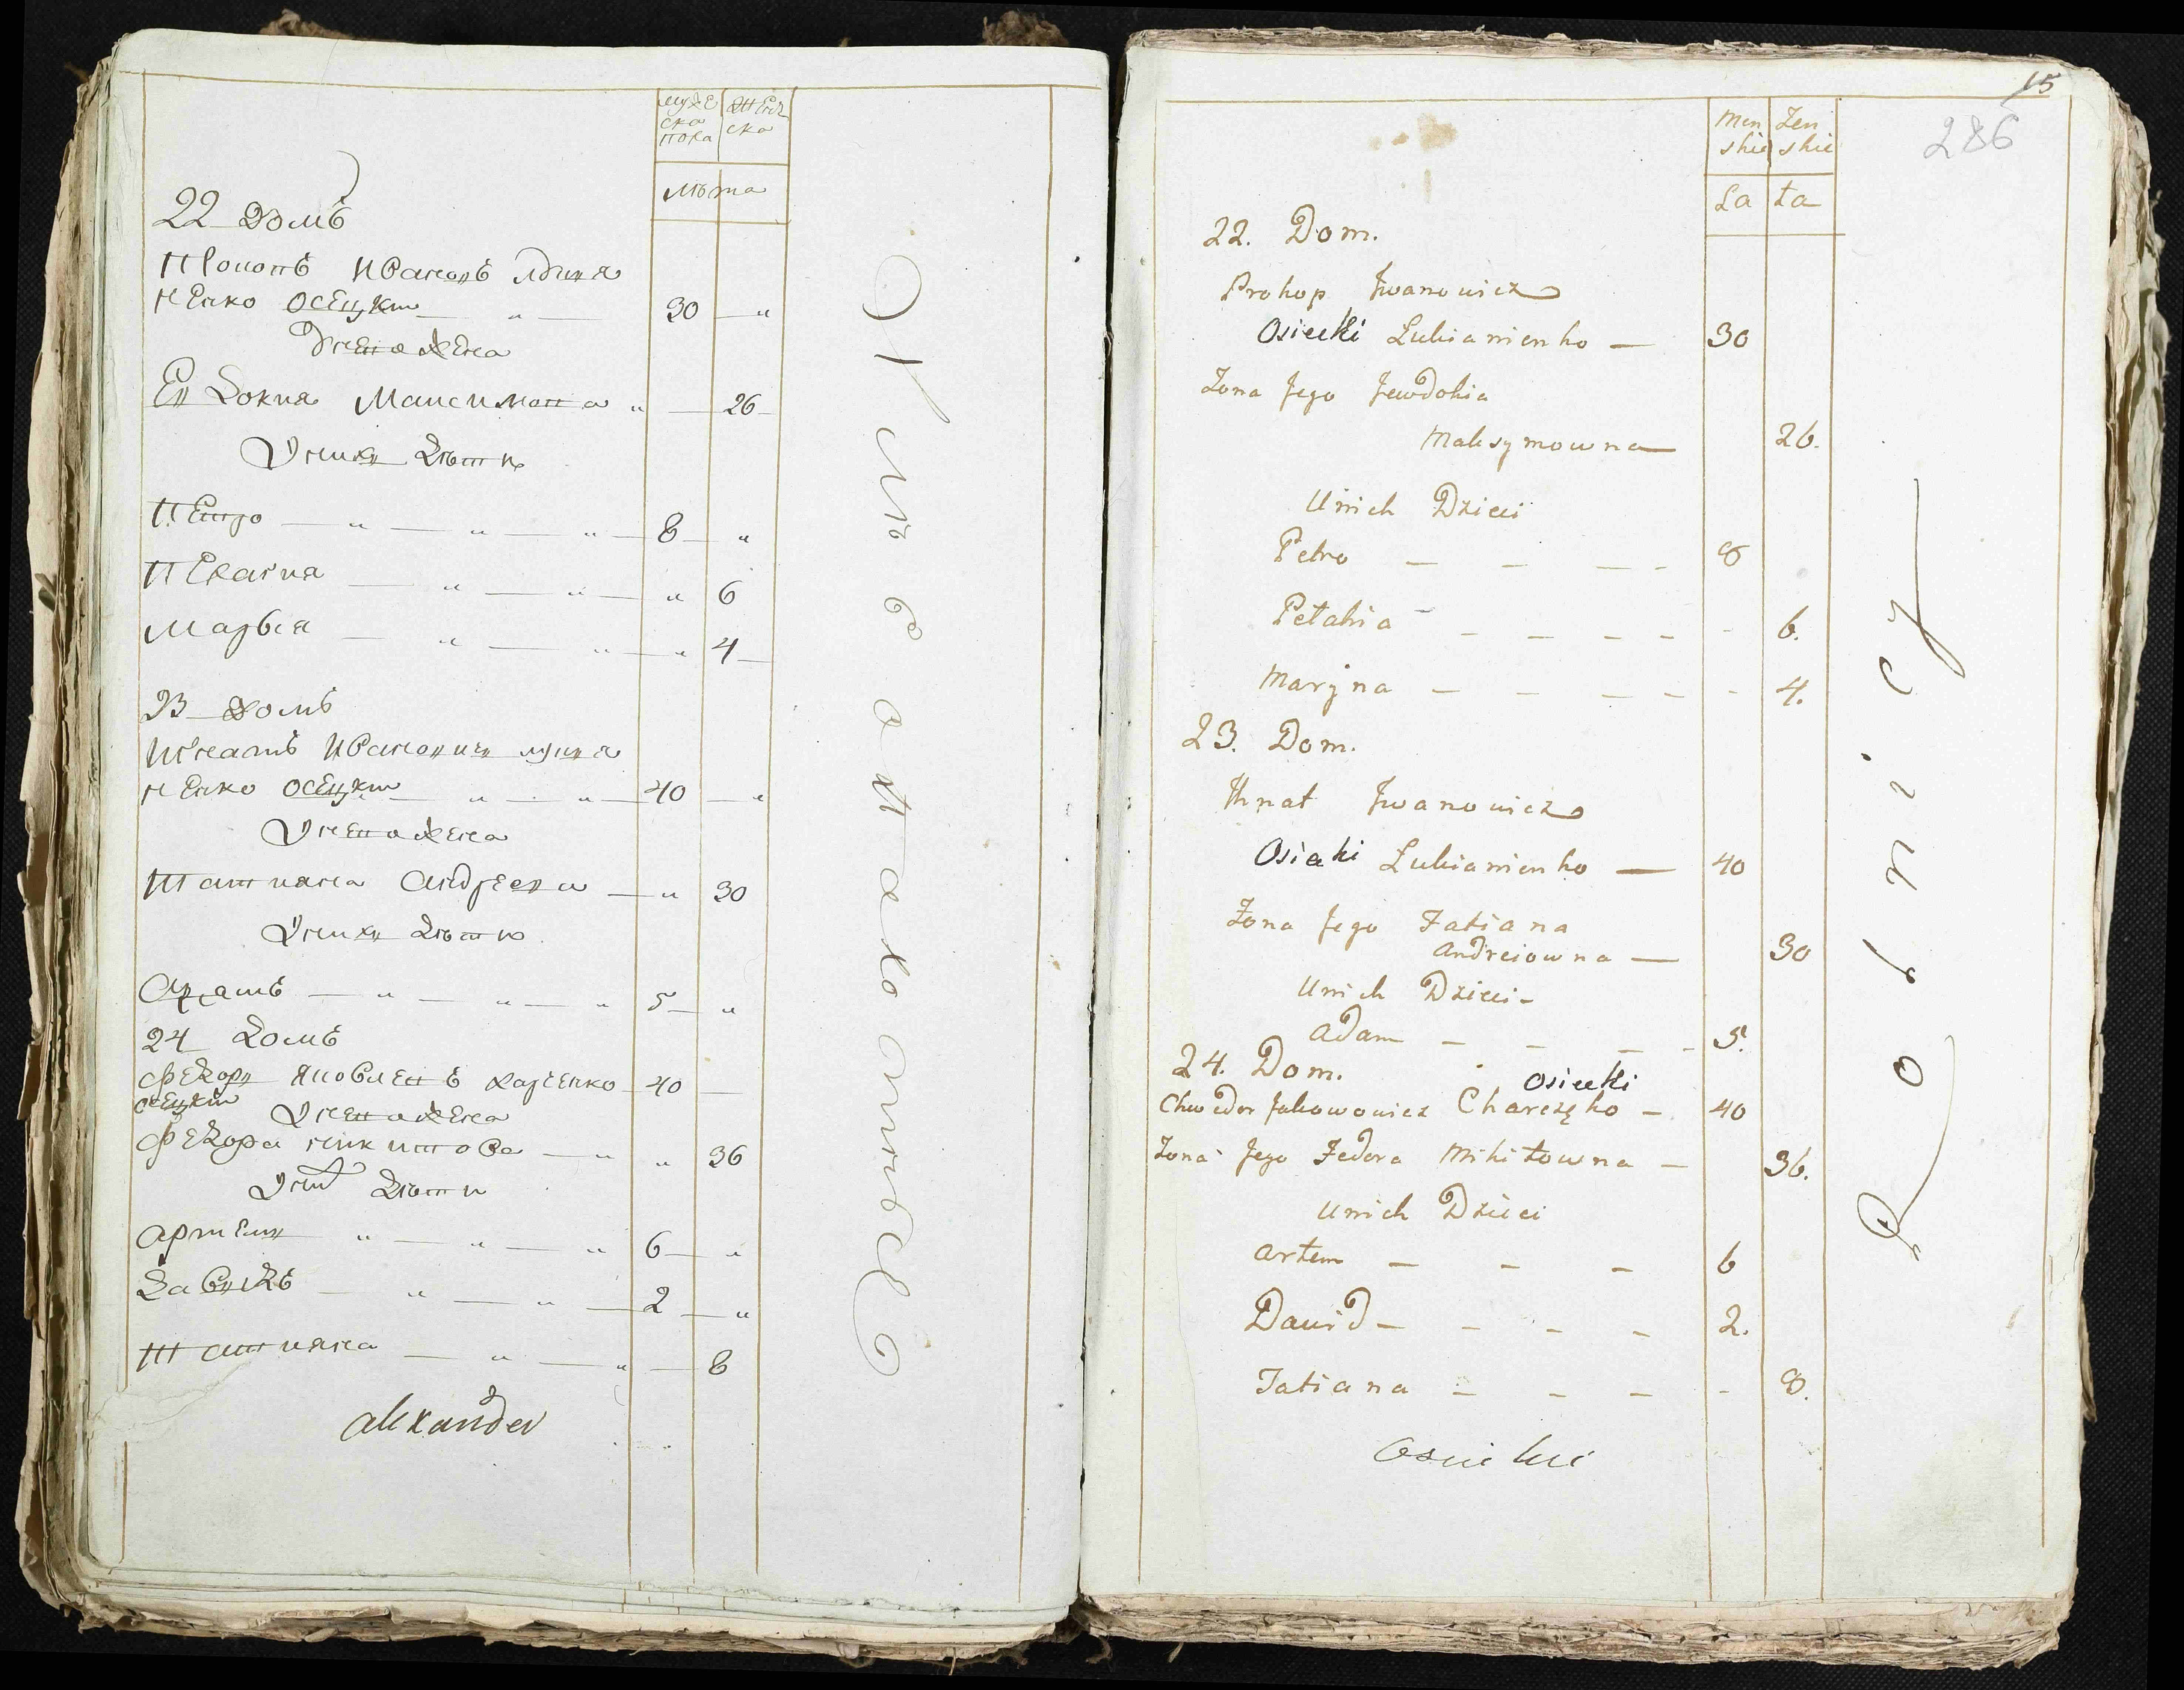 мужеска пола
женска
лѣта
22 домъ
Прокопъ Ивановъ
ненко осецки 30
У него жена
Евдокия Максимова 26
У нихъ дѣти
Петро 8
Пелагия 6
Марья 4
23 домъ
Игнатъ Ивановичъ
ненко осецки 40
У него жена
Татияна Андреева 30
У нихъ дѣти
Адамъ 5
24 домъ
Федоръ Яковлевъ Харченко 40
осецки У него жена
Федора Никитова 36
У них дѣти
Артемъ 6
Давидъ 2
Татияна 8
alexander
15
286
Men
skie
Zen
skie
La ta
22. Dom.
Prokop Jwanowicz
Osiecki Lukianienko — 30
Zona Jego Jewdokia
Maksymowna 26.
Unich Dzieci
Petro — — — — 8
Pełahia — — — — 6.
Maryna — — — — 4.
23. Dom.
Ihnat Jwanowicz
Osiecki Lukianienko — 40
Zona Jego Tatiana
Andreiowna — 30
Unich Dzieci
Adam — — — — 5.
24. Dom. Osiecki
Chwedor Jakowowicz Charczęko — 40
Zona Jego Fedora Mikitowna — 36.
Unich Dzieci
Artem — — — 6
Dawid — — — — 2.
Tatiana — — — — 8.
Osiecki
Rolnicy